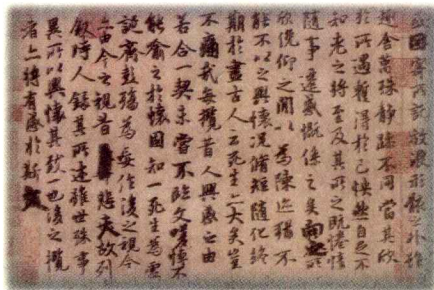 因寄所託放浪形骸之外雖
趣舍萬殊靜躁不同當其欣
於所遇暫得於己怏然自足不
知老之將至及其所之既惓情
隨事遷感慨係之矣向之所
欣俛仰之閒以為陳迹猶不
能不以之興懷況脩短隨化終
期於盡古人云死生亦大矣豈
不痛哉每攬昔人興感之由
若合一契未嘗不臨文嗟悼不
能喻之於懷固知一死生為虛
誕齊彭殤為妄作後之視今
亦由今之視昔悲夫故列
敘時人錄其所述雖世殊事
異所以興懷其致一也後之攬
者亦將有感於斯文